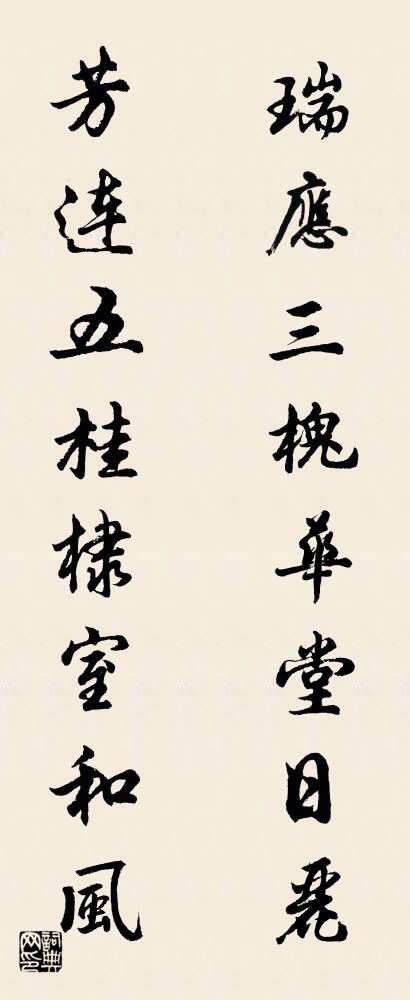 瑞應三槐華堂日麗
芳連五桂棣室和風
詞典網印